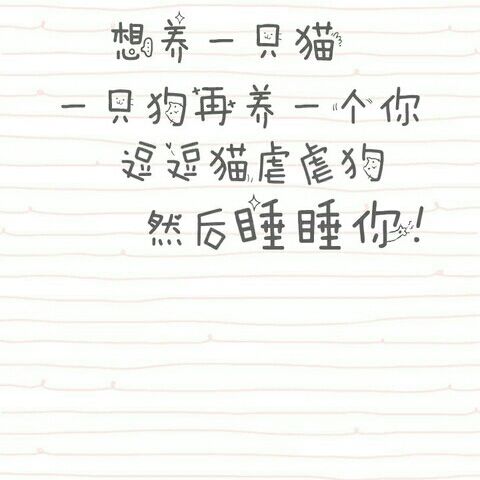 想养一只猫
一只狗再养一个你
逗逗猫虐虐狗
然后睡睡你!